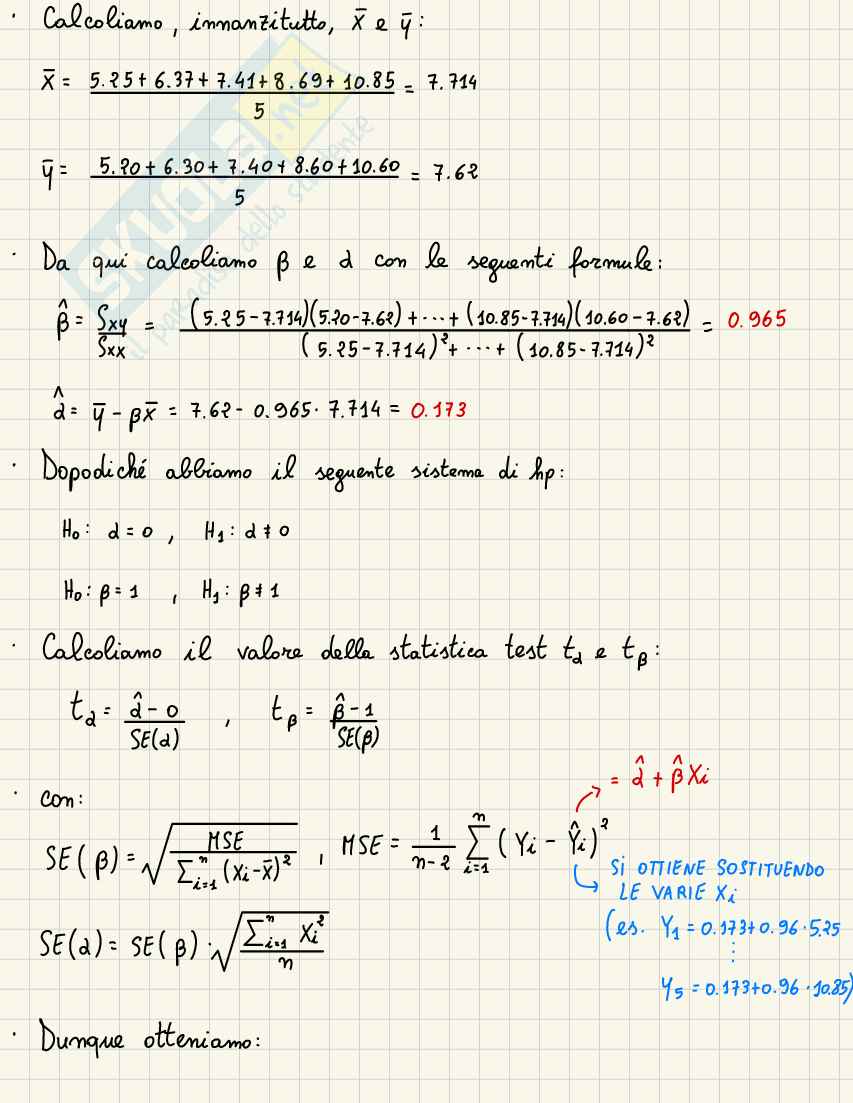 · Calcoliamo, innanzitutto, x̄ e ȳ:
x̄ = (5.25 + 6.37 + 7.41 + 8.69 + 10.85) / 5 = 7.714
ȳ = (5.20 + 6.30 + 7.40 + 8.60 + 10.60) / 5 = 7.62
SKUOLA.net
il paradiso dello studente
· Da qui calcoliamo β e α con le seguenti formule:
β̂ = Sxy / Sxx = ((5.25 - 7.714)(5.20 - 7.62) + ··· + (10.85 - 7.714)(10.60 - 7.62)) / ((5.25 - 7.714)² + ··· + (10.85 - 7.714)²) = 0.965
α̂ = ȳ - βx̄ = 7.62 - 0.965 · 7.714 = 0.173
· Dopodiché abbiamo il seguente sistema di hp:
H₀: α = 0 , H₁: α ≠ 0
H₀: β = 1 , H₁: β ≠ 1
· Calcoliamo il valore della statistica test tα e tβ:
tα = (α̂ - 0) / SE(α) , tβ = (β̂ - 1) / SE(β)
· con:
= α̂ + β̂ Xi
SE(β) = √(MSE / ∑ⁿᵢ₌₁ (xi - x̄)²) , MSE = 1/(n-2) ∑ⁿᵢ₌₁ (Yi - Ŷi)²
SI OTTIENE SOSTITUENDO
LE VARIE Xi
SE(α) = SE(β) · √(∑ⁿᵢ₌₁ Xi² / n)
(es. Y₁ = 0.173 + 0.96 · 5.25
⋮
Y₅ = 0.173 + 0.96 · 10.85)
· Dunque otteniamo: